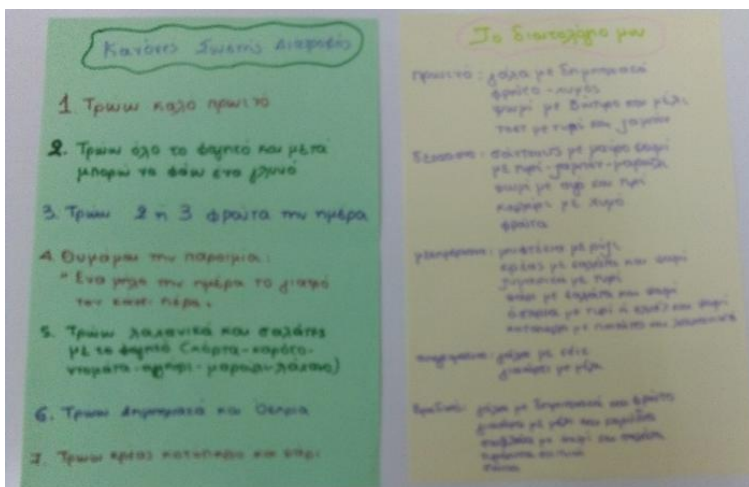 Κανόνες Σωστής Διατροφής
1. Τρώω καλό πρωινό
2. Τρώω όλο το φαγητό και μετά
μπορώ να φάω ένα γλυκό
3. Τρώω 2 ή 3 φρούτα την ημέρα
4. Θυμάμαι την παροιμία:
"Ένα μήλο την ημέρα το γιατρό
τον κάνει πέρα.
5. Τρώω λαχανικά και σαλάτες
με το φαγητό (χόρτα-καρότο-
ντομάτα-αγγούρι-μαρούλι-λάχανο)
6. Τρώω δημητριακά και όσπρια
7. Τρώω κρέας κοτόπουλο και ψάρι
Το διαιτολόγιο μου
πρωινό: γάλα με δημητριακά
φρούτο-χυμός
ψωμί με βούτυρο και μέλι
τοστ με τυρί και ζαμπόν
δεκατιανό: σάντουιτς με μαύρο ψωμί
με τυρί-ζαμπόν-μαρούλι
ψωμί με αυγό και τυρί
με χυμό
φρούτα
μεσημεριανό: μπιφτέκια με ρύζι
κρέας με σαλάτα και ψωμί
ζυμαρικά με τυρί
ψάρι με σαλάτα και ψωμί
όσπρια με τυρί ή και ψωμί
κοτόπουλο με πατάτες και λαχανικά
απογευματινό: γάλα με κέικ
γιαούρτι με μέλι
βραδινό: γάλα με δημητριακά και φρούτο
γιαούρτι με μέλι και καρύδια
με τυρί και σαλάτα